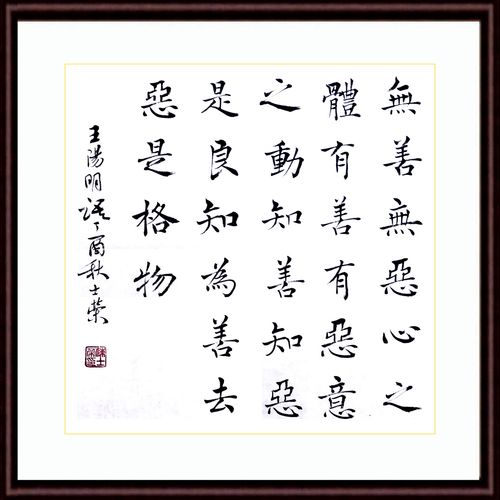 無善無惡心之
體有善有惡意
之動知善知惡
是良知為善去
惡是格物
王陽明語丁酉秋士榮